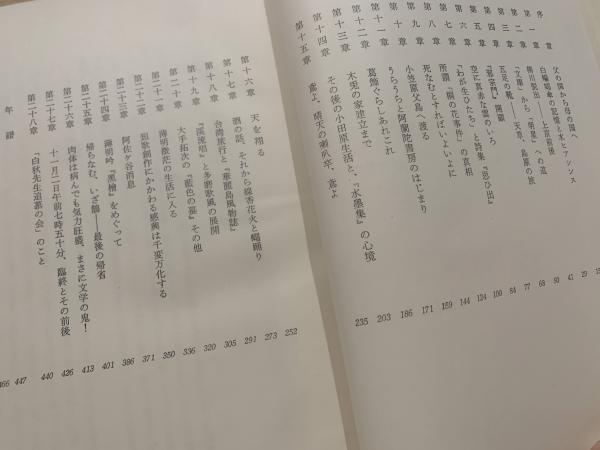 序章 父の国から母の国へ
第一章 白秋揺籃の記憶と水ヒアシンス 15
第二章 柳川脱出――上京前後 29
第三章 「文庫」から「明星」への道 41
第四章 五足の靴――天草、島原の旅 50
第五章 『邪宗門』開顕 68
第六章 空に真赤な雲のいろ 77
第七章 「わが生ひたち」と詩集『思ひ出』 84
第八章 所謂「桐の花事件」の真相 100
第九章 死なむとすればいよいよに 124
第十章 小笠原父島へ渡る 144
第十一章 うらうらと阿蘭陀書房のはじまり 159
第十二章 葛飾ぐらしあれこれ 171
第十三章 木兎の家建立まで 186
第十四章 その後の小田原生活と、『水墨集』の心境 203
第十五章 鳶よ、晴天の喇叭卒、鳶よ 235
第十六章 天を翔る 252
第十七章 酒の話、それから線香花火と蠅踊り 273
第十八章 台湾旅行と『華麗島風物誌』 291
第十九章 『渓流唱』と多磨歌風の展開 305
第二十章 大手拓次の『藍色の蟇』その他 320
第二十一章 薄明微茫の生活に入る 336
第二十二章 短歌創作にかかわる感興は千変万化する 350
第二十三章 阿佐ケ谷消息 371
第二十四章 薄明吟『黒檜』をめぐって 386
第二十五章 帰らなむ、いざ鵲――最後の帰省 401
第二十六章 肉体は病んでも気力旺盛、まさに文学の鬼! 413
第二十七章 十一月二日午前七時五十分、臨終とその前後 426
第二十八章 「白秋先生追慕の会」のこと 440
年譜 447
466